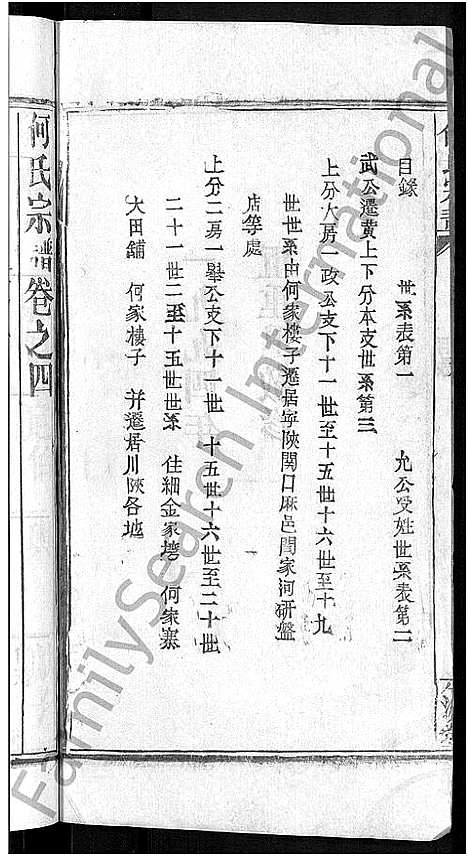 目錄　世系表第一　允公受姓世系表第二
武公遷黄上下分本支世系第三
上分大房一政公支下十一世至十五世十六世至十九
世世系由何家樓子遷居寧陝関口麻邑閆家河研盤
店等處
上分二房一舉公支下十一世　十五世十六世至二十世
二十一世二至十五世世系　住細金家塆　何家寨
大田舖　何家樓子　并遷居川陝各地
何氏宗譜卷之四
FamilySearch International